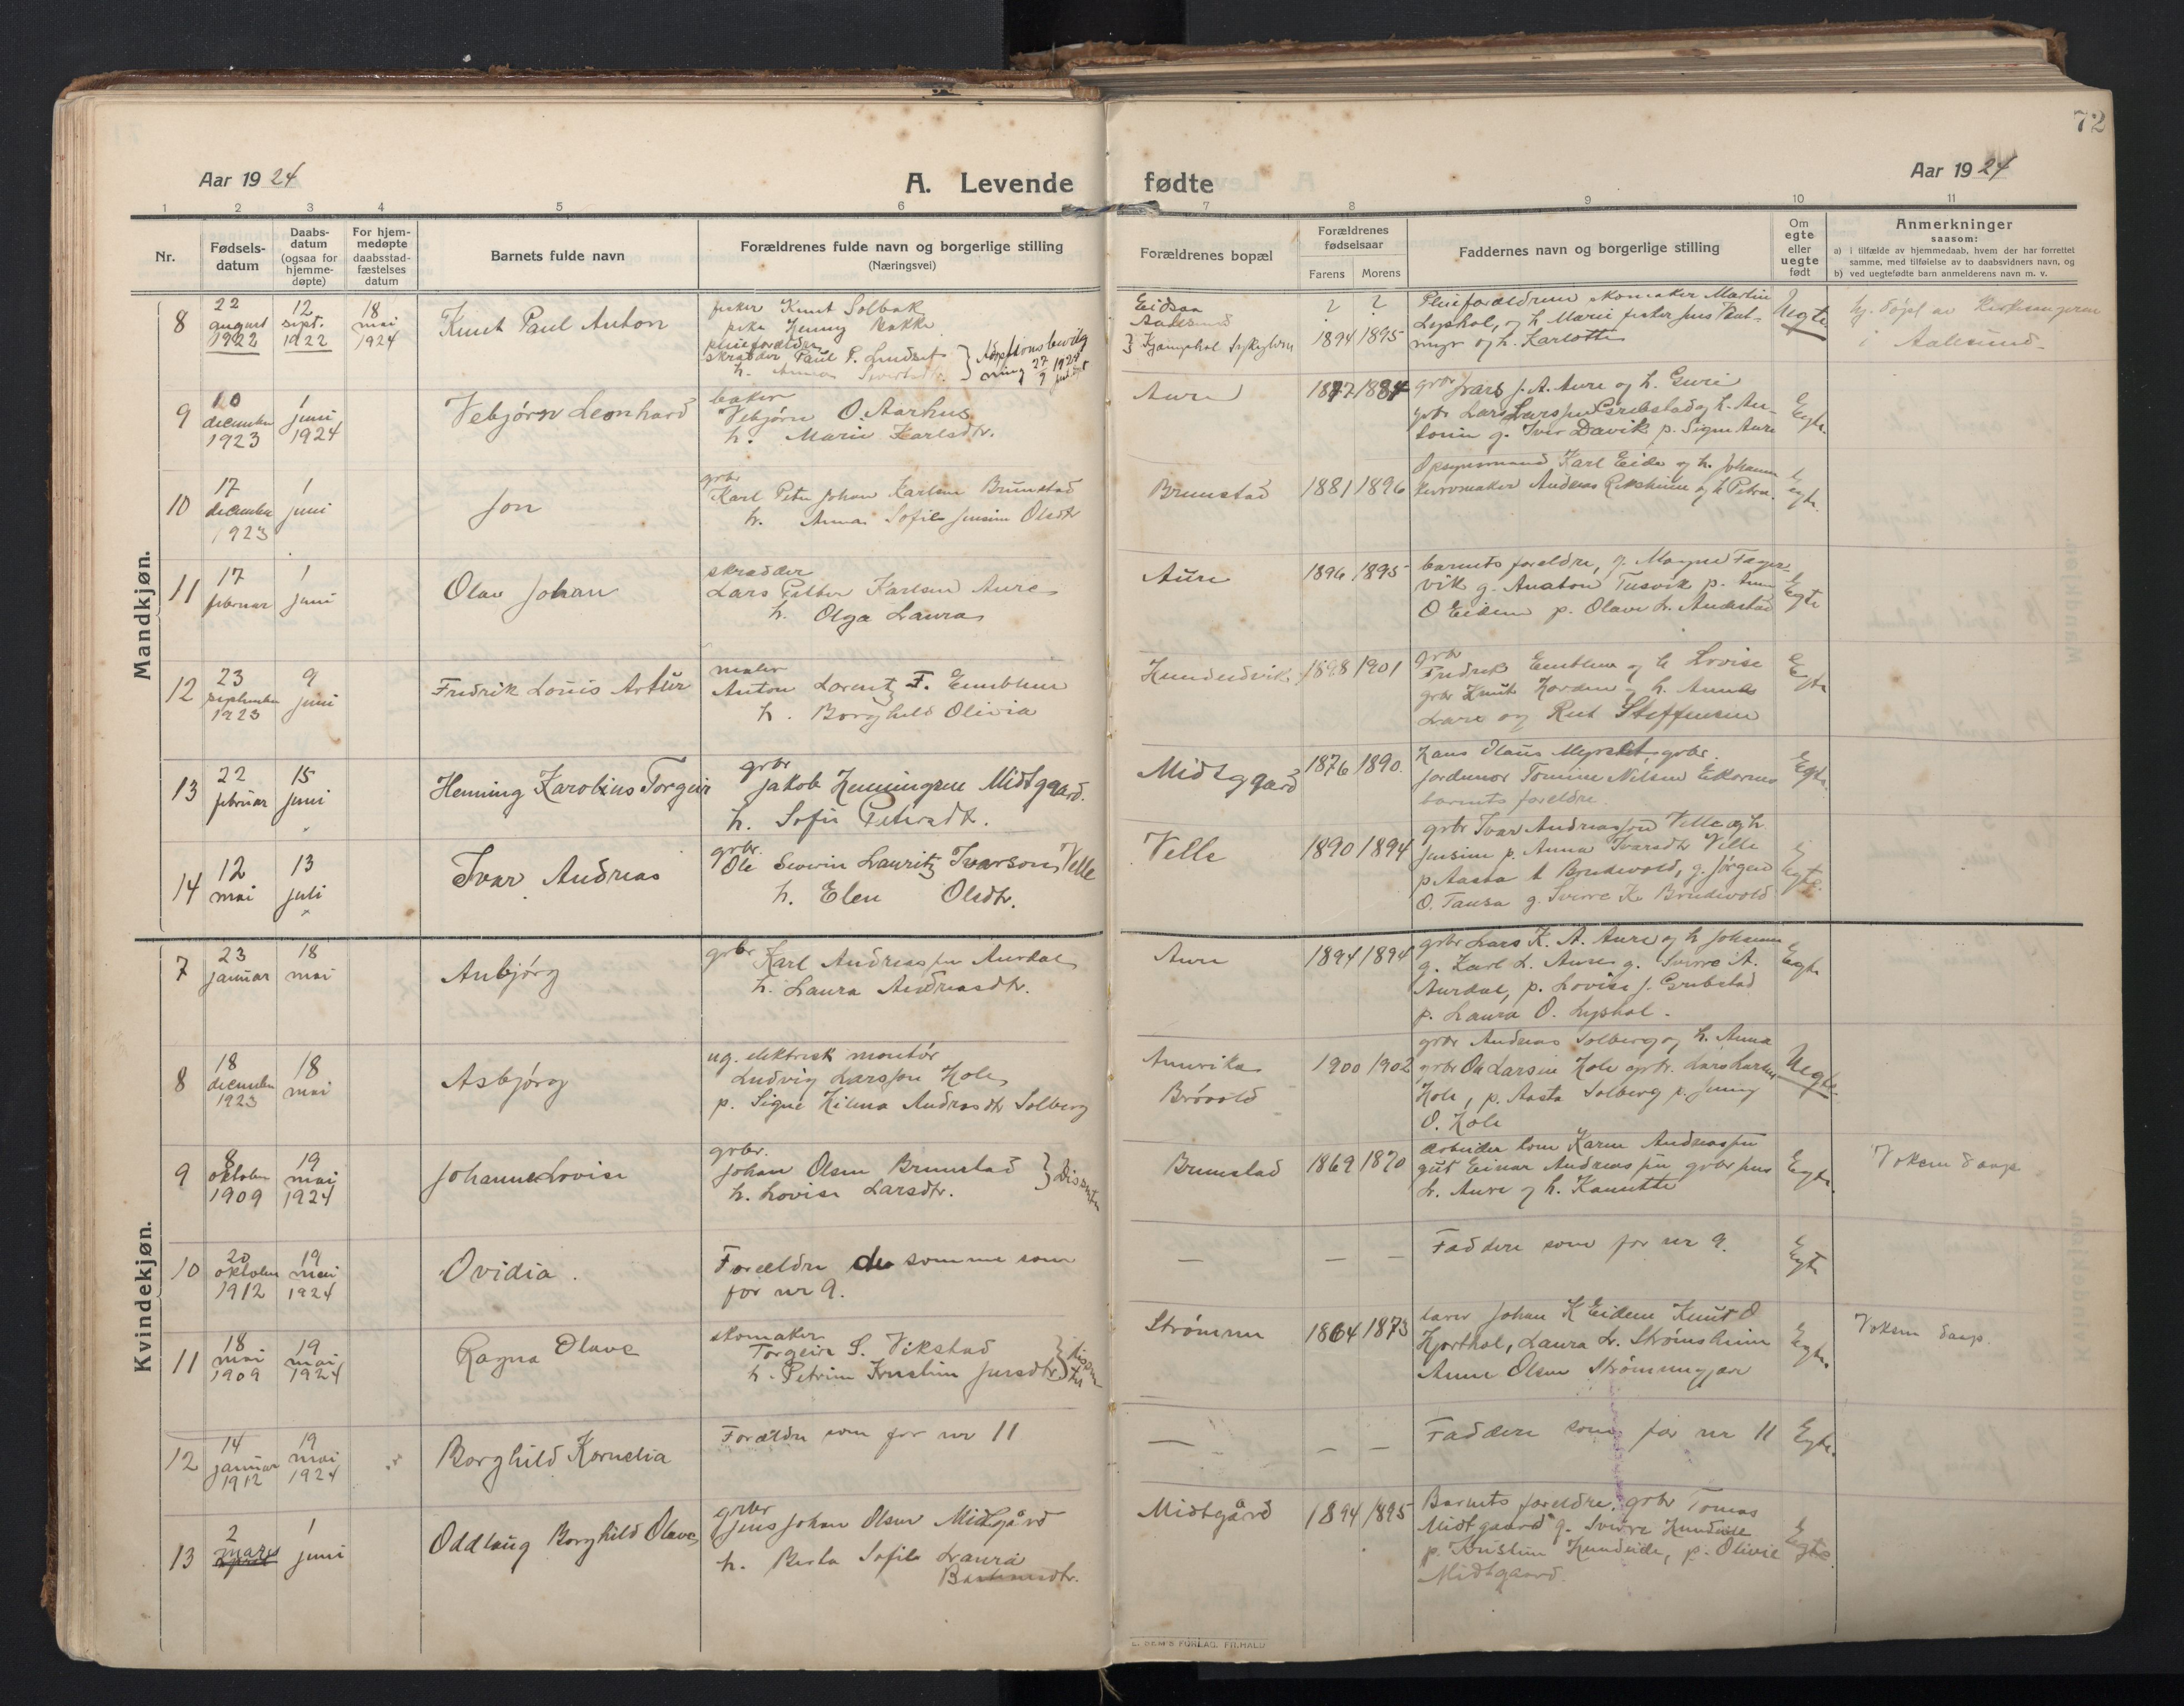 72
Aar 1924
A. Levende fødte
Aar 1924
1 2 3 4 5 6 7 8 9 10 11
Nr.
Fødsels-
datum
Daabs-
datum
(ogsaa for
hjemme-
døpte)
For hjem-
medøpte
daabsstad-
fæstelses
datum
Barnets fulde navn
Forældrenes fulde navn og borgerlige stilling
(Næringsvei)
Forældrenes bopæl
Forældrenes
fødselsaar
Farens Morens
Faddernes navn og borgerlige stilling
Om
egte
eller
uegte
født
Anmerkninger
saasom:
a) i tilfælde av hjemmedaab, hvem der har forrettet
samme, med tilføielse av to daabsvidners navn, og
b) ved uegtefødte barn anmelderens navn m. v.
Mandkjøn.
8
22
august
1922
12
sept.
1922
18
mai
1924
Knut Paul Anton
fisker Knut Solbak
pike Jenny Bakke
pleieforældre
skrædder Paul P. Lindset
Eidsaa
Aalesund
? ?
1894 1895
Pleieforældrene skomaker Martin
Lyshol, og h. Marie fisker Jens Paul-
myr og h. Karlotte
Uegte
hj. døpt av Kirkesangeren
i Aalesund
9
10
december
1923
1
juni
1924
Vebjørn Leonhard
baker
Vebjørn O. Aarhus
h. Marie Karlsdtr.
Aure
1872 1884
grbr Lars J. A. Aure og h. Guri
grbr Lars Larssen Grebstad og h. An-
tonie g. Iver Davik p. Signe Aure
Egte.
10
17
december
1923
1
juni
Jon
grbr
Karl Peter Johan Karlsen Brunstad
h. Anna Sofie Jensine Olsdtr
Brunstad
1881 1896
Opsynsmand Karl Eide og h. Johanne
kurvmaker Andreas Rekheim og h. Petra.
Egte.
11
17
februar
1
juni
Olav Johan
skrædder
Lars Petter Karlsen Aure
h. Olga Laura
Aure
1896 1895
barnets forældre, g. Magne Fages-
vik g. Anaton Tusvik p. Anne
O Eidem p. Olave L. Andestad
Egte
12
23
september
1923
9
juni
Fredrik Louis Artur
maler
Anton Lorentz F. Emblem
h. Borghild Olivia
Hundeidvik
1898 1901
grbr
Fredrik Emblem og h Lovise
grbr Knut Hordem og h. Anne
Lars og Rut Steffensen
Egte
13
22
februar
15
juni
Henning Karolius Torgeir
grbr
Jakob Henningsen Midtgaard.
h. Sofie Petersdtr.
Midtgaard
1876 1890.
Hans Olaus Myrset, grbr.
jordmor Tomine Nilsen Ekornes
barnets forældre.
Egte.
14
12
mai
13
juli
Ivar Andreas
grbr.
Ole Severin Lauritz Ivarson Velle
h. Elen Olsdtr.
Velle
1890 1894
grbr Ivar Andreassen Velle og h
Jensine p. Anna Ivarsdtr Velle
p Aasta K Brudevold, g. Jørgen
O. Tausa g. Sverre K Brudevold
Egte.
Kvindekjøn.
7
23
januar
18
mai
Anbjørg
grbr
Karl Andreassen Aurdal
h. Laura Andreasdtr.
Aure
1894 1894
grbr Lars K. A. Aure og h Johanne
g. Karl L. Aure g. Sverre A.
Aurdal, p. Lovise J. Grebstad
p. Laura O. Lyshol.
Egte
8
18
december
1923
18
mai
Asbjørg
ug. elektrisk montør
Ludvig Larssen Hole
p. Signe Hilma Andreasdtr Solberg
Amerika
Brøvold
1900 1902
grbr Andreas Solberg og h. Anna
grbr Ole Larsen Hole grbr. Lars Larsen
Hole, p. Aasta Solberg p. Jenny
O. Hole
Uegte.
9
8
oktober
1909
19
mai
1924
Johanne Lovise
grbr.
Johan Olsen Brunstad
h. Lovise Larsdtr.
Brunstad
1869 1870
Arbeider Tom Karen Andreassen
gut Einar Andreassen grbr Jens
L. Aure og h. Kanutte
Egte.
Voksen daap
10
20
oktober
1912
19
mai
1924
Ovidia.
Forældre de samme som
for nr 9.
— — —
Faddere som for nr 9.
Egte
11
18
mai
1909
19
mai
1924
Ragna Olave
skomaker
Torgeir S. Vikstad
h. Petrine Kristine Jensdtr
Strømme
1864 1873
lærer Johan K Eidem Knut O
Hjorthol, Laura L. Strømsheim
Anne Olsen Strømmegjær
Egte.
Voksen daap.
12
14
januar
1912
19
mai
1924
Borghild Kornelia
Forældre som for nr 11
— — —
Faddere som for nr 11
Egte.
13
2
mars
1
juni
Oddlaug Borghild Olave
grbr
Jens Johan Olsen Midtgård
h. Berta Sofie Laura
Midtgård
1894 1895
Barnets forældre, grbr Tomas
Midtgaard g. Sverre Hundeide
p. Kristine Hundeide, p. Olivie
Midtgaard.
Egte.
E. SEM'S FORLAG, FR.HALD